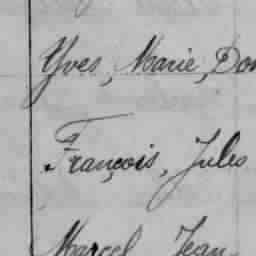 Yves, Marie, Don
François, Jules
Marcel, Jean